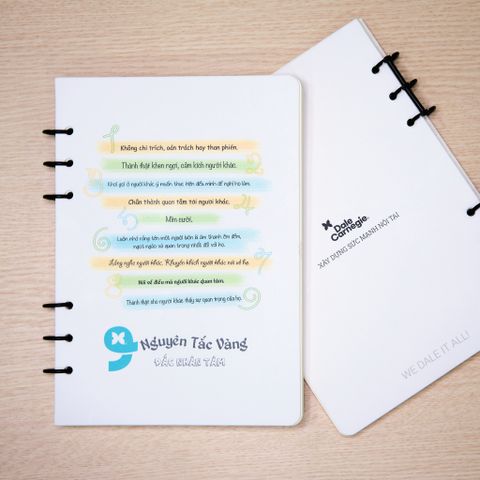 1
Không chỉ trích, oán trách hay than phiền.
2
Thành thật khen ngợi, cảm kích người khác.
3
Khơi gợi ở người khác ý muốn thực hiện điều mình đề nghị họ làm.
4
Chân thành quan tâm tới người khác.
5
Mỉm cười.
6
Luôn nhớ rằng tên một người bởi là âm thanh êm đềm,
ngọt ngào và quan trọng nhất đối với họ.
7
Lắng nghe người khác. Khuyến khích người khác nói về họ.
8
Nói về điều mà người khác quan tâm.
9
Thành thật cho người khác thấy sự quan trọng của họ.
9 Nguyên Tắc Vàng
ĐẮC NHÂN TÂM
Dale
Carnegie
XÂY DỰNG SỨC MẠNH NỘI TẠI
WE DALE IT ALL!